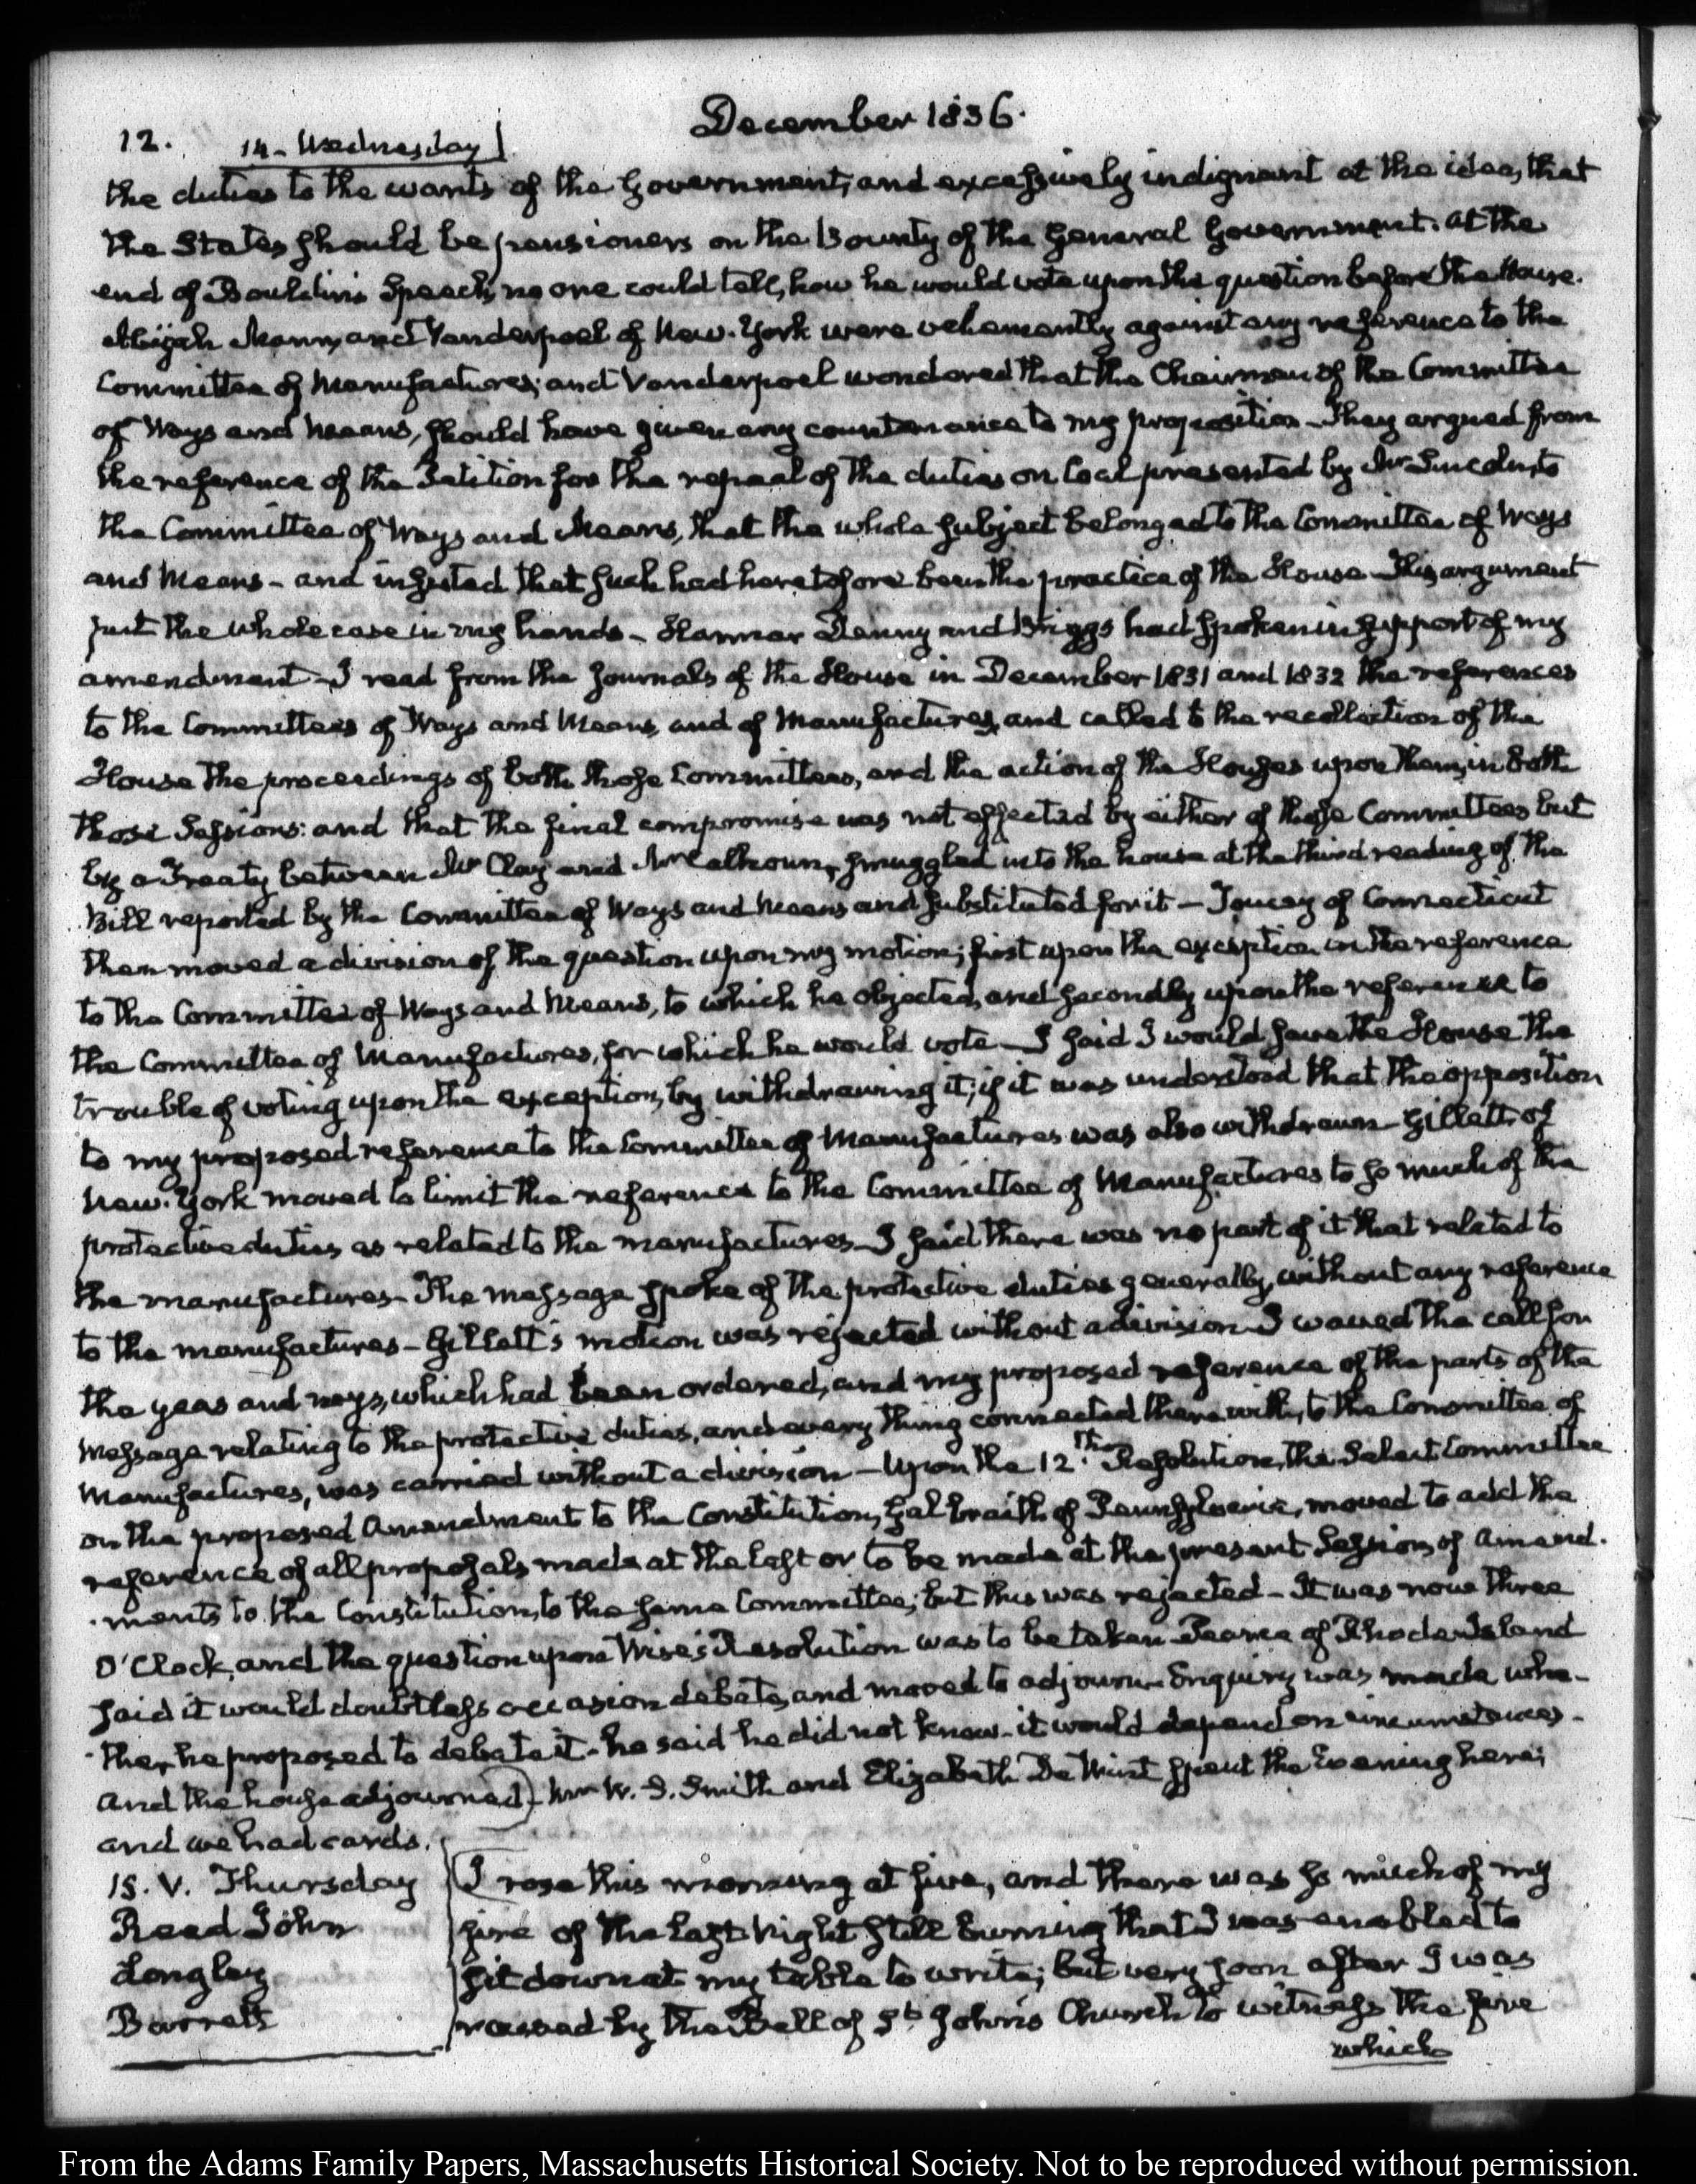 December 1836.
12. 14. Wednesday
the duties to the wants of the Government, and excessively indignant at the idea, that
the States should be pensioners on the Bounty of the General Government. At the
end of Bouldin's Speech, no one could tell, how he would vote upon the question before the House.
Abijah Mann, and Vanderpoel of New-York were vehemently against any reference to the
Committee of Manufactures; and Vanderpoel wondered that the Chairman of the Committee
of Ways and Means, should have given any countenance to my proposition - They argued from
the reference of the Petition for the repeal of the duties on Coal presented by Mr to
the Committee of Ways and Means, that the whole subject belonged to the Committee of Ways
and Means - and insisted that such had heretofore been the practice of the House - This argument
put the whole case in my hands - Harmar Denny and Briggs had spoken in support of my
amendment - I read from the Journals of the House in December 1831 and 1832 the references
to the Committees of Ways and Means, and of Manufactures, and called to the recollection of the
House the proceedings of both those Committees, and the action of the Houses upon them, in both
those Sessions: and that the final compromise was not effected by either of those Committees but
by a Treaty between Mr Clay and Mr Calhoun, smuggled into the house at the third reading of the
Bill reported by the Committee of Ways and Means and substituted for it - Toucey of Connecticut
then moved a division of the question upon my motion; first upon the exception in the reference
to the Committee of Ways and Means, to which he objected, and secondly upon the reference to
the Committee of Manufactures, for which he would vote - I said I would save the House the
trouble of voting upon the exception, by withdrawing it; if it was understood that the opposition
to my proposed reference to the Committee of Manufactures was also withdrawn - Gillett of
New-York moved to limit the reference to the Committee of Manufactures to so much of the
protective duties as related to the manufactures - I said there was no part of it that related to
the manufactures - The message spoke of the protective duties generally, without any reference
to the manufactures - Gillett's motion was rejected without a division - I waved the call for
the yeas and nays, which had been ordered, and my proposed reference of the parts of the
Message relating to the protective duties, and every thing connected therewith, to the Committee of
Manufactures, was carried without a division - Upon the 12th. Resolution, the Select Committee
on the proposed Amendment to the Constitution, Galbraith of Pennsylvania, moved to add the
reference of all proposals made at the last or to be made at the present Session, of Amend-
-ments to the Constitution, to the same Committee; but this was rejected - It was now three
O'Clock, and the question upon Wise's Resolution was to be taken - Pearce of Rhode-Island
said it would doubtless occasion debate, and moved to adjourn - Enquiry was made whe-
-ther he proposed to debate it - he said he did not know - it would depend on circumstances -
and the house adjourned) - Mrs W. S. Smith and Elizabeth De Wint spent the Evening here;
and we had cards.
15. V. Thursday
Read John
Longley
Borrells
I rose this morning at five, and there was so much of my
fire of the last Night still burning that I was enabled to
sit down at my table to write; but very soon after I was
roused by the Bell of St. John's Church to witness the fire
which
From the Adams Family Papers, Massachusetts Historical Society. Not to be reproduced without permission.